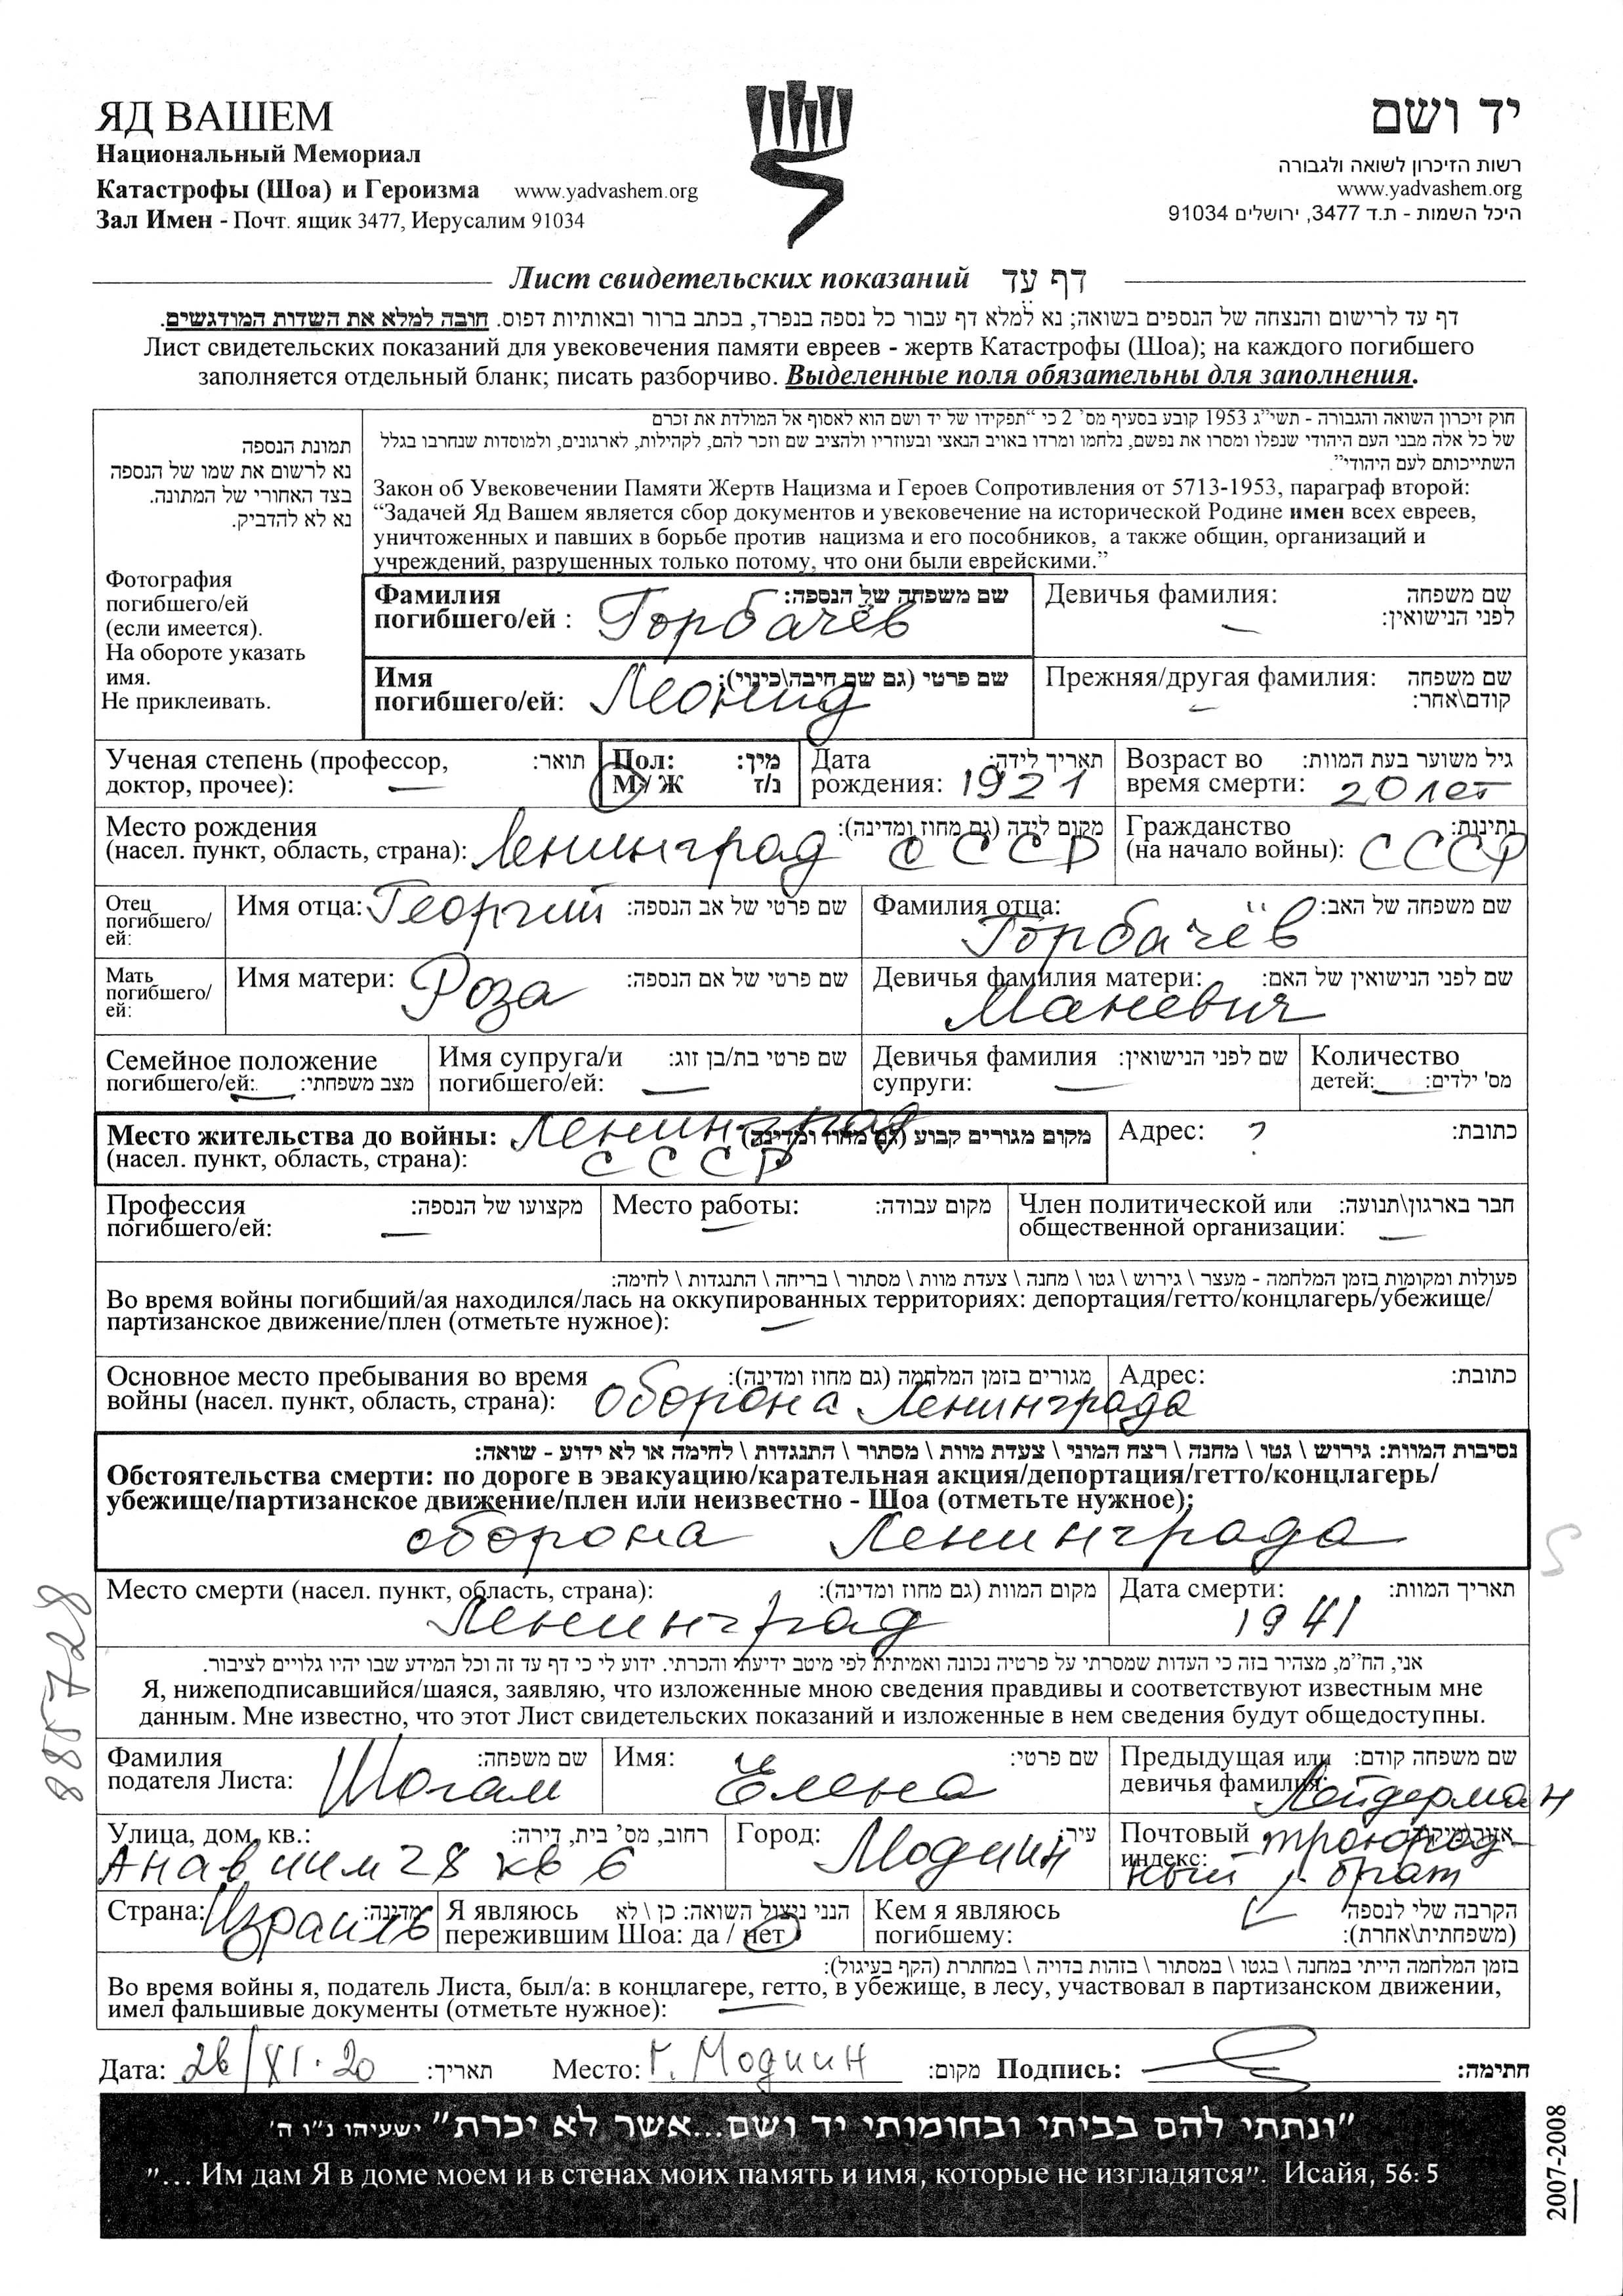 ЯД ВАШЕМ
Национальный Мемориал
Катастрофы (Шоа) и Героизма www.yadvashem.org
Зал Имен - Почт. ящик 3477, Иерусалим 91034
יד ושם
רשות הזיכרון לשואה ולגבורה
www.yadvashem.org
היכל השמות - ת.ד 3477, ירושלים 91034
Лист свидетельских показаний דף עד
דף עד לרישום והנצחה של הנספים בשואה; נא למלא דף עבור כל נספה בנפרד, בכתב ברור ובאותיות דפוס. חובה למלא את השדות המודגשים.
Лист свидетельских показаний для увековечения памяти евреев - жертв Катастрофы (Шоа); на каждого погибшего
заполняется отдельный бланк; писать разборчиво. Выделенные поля обязательны для заполнения.
תמונת הנספה
נא לרשום את שמו של הנספה
בצד האחורי של המתונה.
נא לא להדביק.
Фотография
погибшего/ей
(если имеется).
На обороте указать
имя.
Не приклеивать.
חוק זיכרון השואה והגבורה - תשי"ג 1953 קובע בסעיף מס' 2 כי "תפקידו של יד ושם הוא לאסוף אל המולדת את זכרם
של כל אלה מבני העם היהודי שנפלו ומסרו את נפשם, נלחמו ומרדו באויב הנאצי ובעוזריו ולהציב שם וזכר להם, לקהילות, לארגונים, ולמוסדות שנחרבו בגלל
השתייכותם לעם היהודי".
Закон об Увековечении Памяти Жертв Нацизма и Героев Сопротивления от 5713-1953, параграф второй:
“Задачей Яд Вашем является сбор документов и увековечение на исторической Родине имен всех евреев,
уничтоженных и павших в борьбе против нацизма и его пособников, а также общин, организаций и
учреждений, разрушенных только потому, что они были еврейскими.”
Фамилия שם משפחה של הנספה:
погибшего/ей : Горбачёв
Девичья фамилия: שם משפחה
לפני הנישואין: —
Имя שם פרטי (גם שם חיבה\כינוי):
погибшего/ей: Леонид
Прежняя/другая фамилия: שם משפחה
קודם\אחר: —
Ученая степень (профессор, תואר:
доктор, прочее): —
Пол: מין:
М / Ж נ/ז
Дата תאריך לידה:
рождения: 1921
Возраст во גיל משוער בעת המוות:
время смерти: 20 лет
Место рождения מקום לידה (גם מחוז ומדינה):
(насел. пункт, область, страна): Ленинград СССР
Гражданство נתינות:
(на начало войны): СССР
Отец
погибшего/
ей:
Имя отца: Георгий שם פרטי של אב הנספה:
Фамилия отца: שם משפחה של האב:
Горбачёв
Мать
погибшего/
ей:
Имя матери: Роза שם פרטי של אם הנספה:
Девичья фамилия матери: שם לפני הנישואין של האם:
Маневич
Семейное положение
погибшего/ей: — מצב משפחתי:
Имя супруга/и שם פרטי בת/בן זוג:
погибшего/ей: —
Девичья фамилия שם לפני הנישואין:
супруги: —
Количество
детей: — מס' ילדים:
Место жительства до войны: Ленинград מקום מגורים קבוע (גם מחוז ומדינה)
(насел. пункт, область, страна): СССР
Адрес: ? כתובת:
Профессия מקצועו של הנספה:
погибшего/ей: —
Место работы: מקום עבודה:
—
Член политической или חבר בארגון\תנועה:
общественной организации: —
פעולות ומקומות בזמן המלחמה - מעצר \ גירוש \ גטו \ מחנה \ צעדת מוות \ מסתור \ בריחה \ התנגדות \ לחימה:
Во время войны погибший/ая находился/лась на оккупированных территориях: депортация/гетто/концлагерь/убежище/
партизанское движение/плен (отметьте нужное): —
Основное место пребывания во время מגורים בזמן המלחמה (גם מחוז ומדינה):
войны (насел. пункт, область, страна): оборона Ленинграда
Адрес: כתובת:
נסיבות המוות: גירוש \ גטו \ מחנה \ רצח המוני \ צעדת מוות \ מסתור \ התנגדות \ לחימה או לא ידוע - שואה:
Обстоятельства смерти: по дороге в эвакуацию/карательная акция/депортация/гетто/концлагерь/
убежище/партизанское движение/плен или неизвестно - Шоа (отметьте нужное);
оборона Ленинграда
Место смерти (насел. пункт, область, страна): מקום המוות (גם מחוז ומדינה):
Ленинград
Дата смерти: תאריך המוות:
1941
אני, הח"מ, מצהיר בזה כי העדות שמסרתי על פרטיה נכונה ואמיתית לפי מיטב ידיעתי והכרתי. ידוע לי כי דף עד זה וכל המידע שבו יהיו גלויים לציבור.
Я, нижеподписавшийся/шаяся, заявляю, что изложенные мною сведения правдивы и соответствуют известным мне
данным. Мне известно, что этот Лист свидетельских показаний и изложенные в нем сведения будут общедоступны.
Фамилия שם משפחה:
подателя Листа: Шогам
Имя: שם פרטי:
Елена
Предыдущая или שם משפחה קודם:
девичья фамилия: Лейдерман
Улица, дом, кв.: רחוב, מס' בית, דירה:
28 кв 6
Город: Модиин עיר:
Почтовый троюрод-
индекс: ный брат
Страна: Израиль מדינה:
Я являюсь הנני ניצול השואה: כן \ לא
пережившим Шоа: да / нет
Кем я являюсь הקרבה שלי לנספה
погибшему: (משפחתית\אחרת):
בזמן המלחמה הייתי במחנה \ בגטו \ במסתור \ בזהות בדויה \ במחתרת (הקף בעיגול):
Во время войны я, податель Листа, был/а: в концлагере, гетто, в убежище, в лесу, участвовал в партизанском движении,
имел фальшивые документы (отметьте нужное): —
Дата: 26/XI.20 תאריך: Место: г. Модиин מקום: Подпись: חתימה:
"ונתתי להם בביתי ובחומותי יד ושם...אשר לא יכרת" ישעיהו נ"ו ה'
”... Им дам Я в доме моем и в стенах моих память и имя, которые не изгладятся”. Исайя, 56: 5
885728
2007-2008